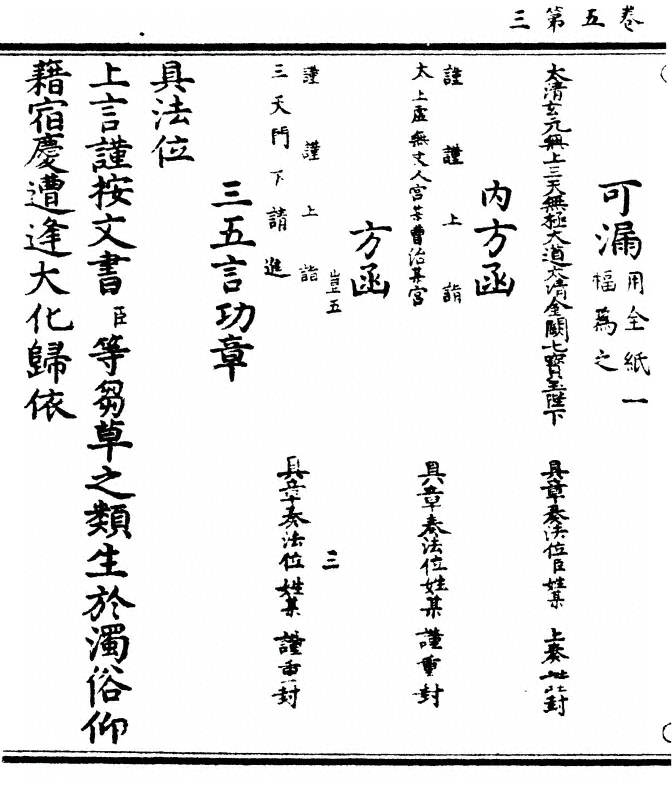 三第五卷
可漏用全紙一
幅為之
太清玄元無上三天無極大道太清金闕七寳玉陛下　具章奏法位臣姓某　上奏　封
內方函
謹謹上詣
太上虛無丈人宮某曹治某宮　具章奏法位姓某　謹重封
方函
豈五　三
謹謹上詣
三天門下請進　具章奏法位姓某　謹重封
三五言功章
具法位
上言謹按文書臣等芻草之類生於濁俗仰
藉宿慶遭逢大化歸依